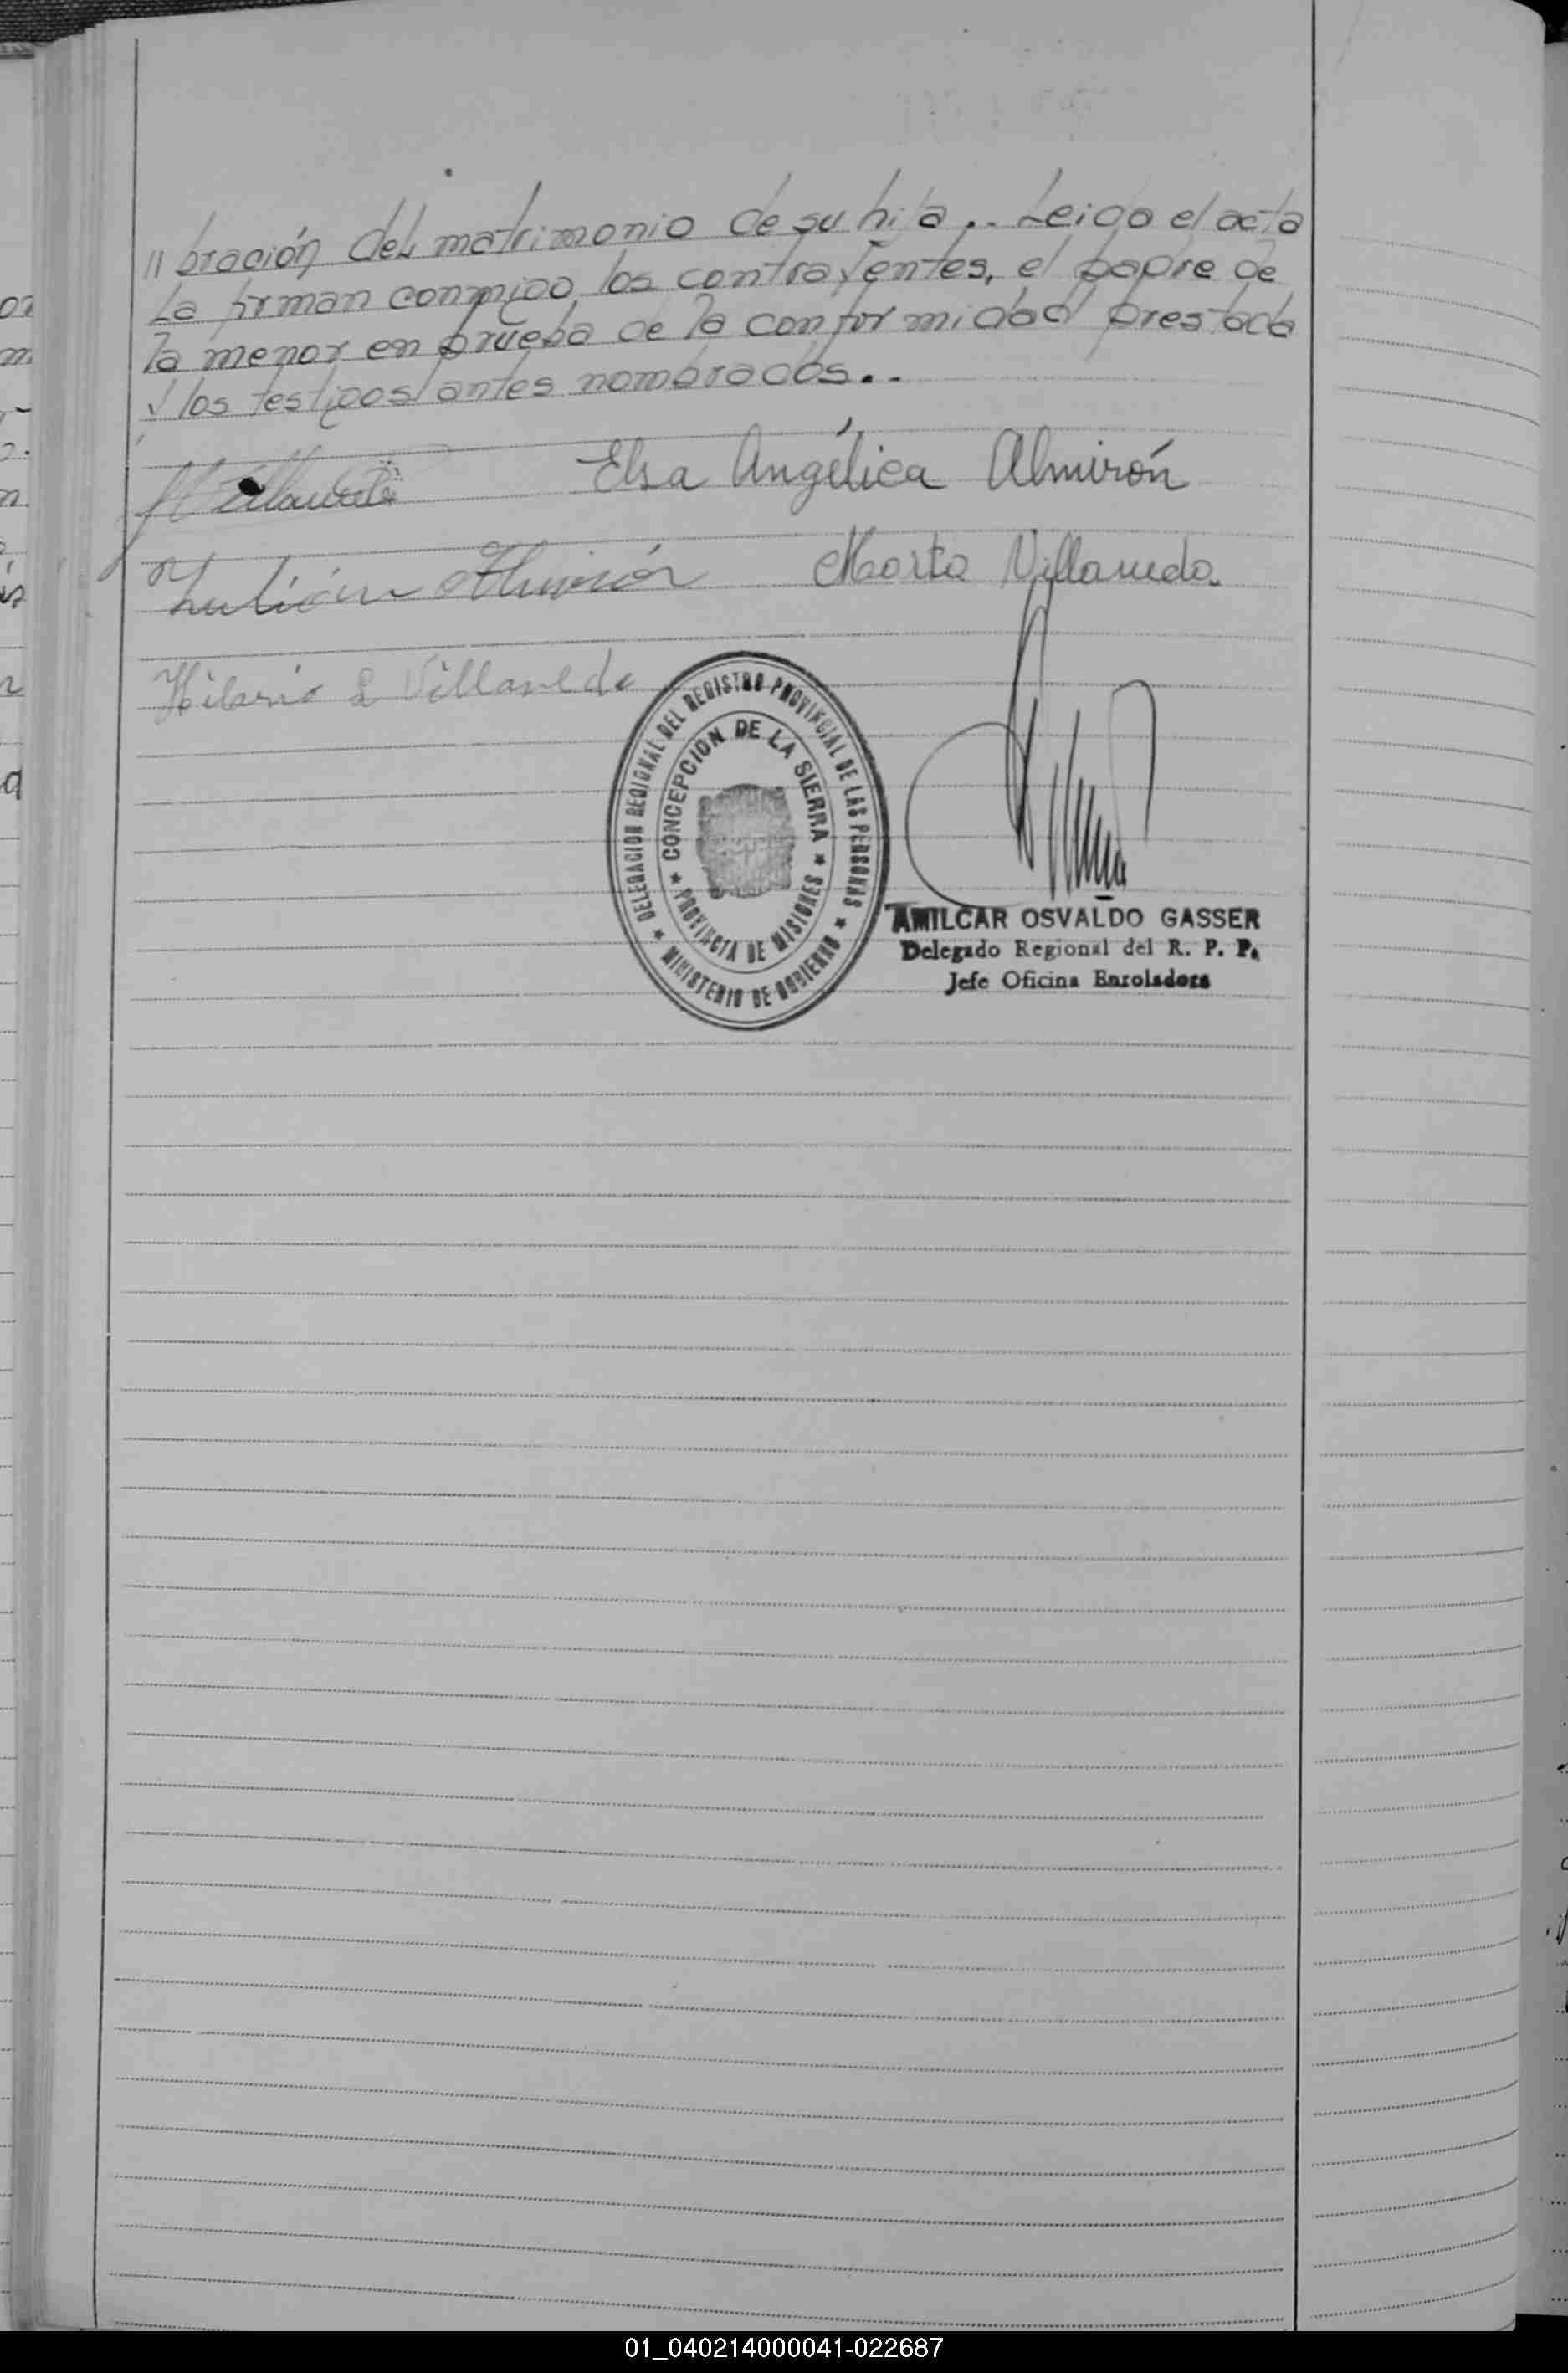 // bración del matrimonio de su hija.. Leido el acta
La firman conmigo, los contrayentes, el padre de
la menor en prueba de la conformidad prestada
y los testigos antes nombrados..
Elsa Angélica Almirón
Julián Almirón Marta Villanueda
Hilario L Villanueda
DELEGACION REGIONAL DEL REGISTRO PROVINCIAL DE LAS PERSONAS
CONCEPCION DE LA SIERRA
PROVINCIA DE MISIONES
MINISTERIO DE GOBIERNO
AMILCAR OSVALDO GASSER
Delegado Regional del R. P. P.
Jefe Oficina Enroladora
01_040214000041-022687